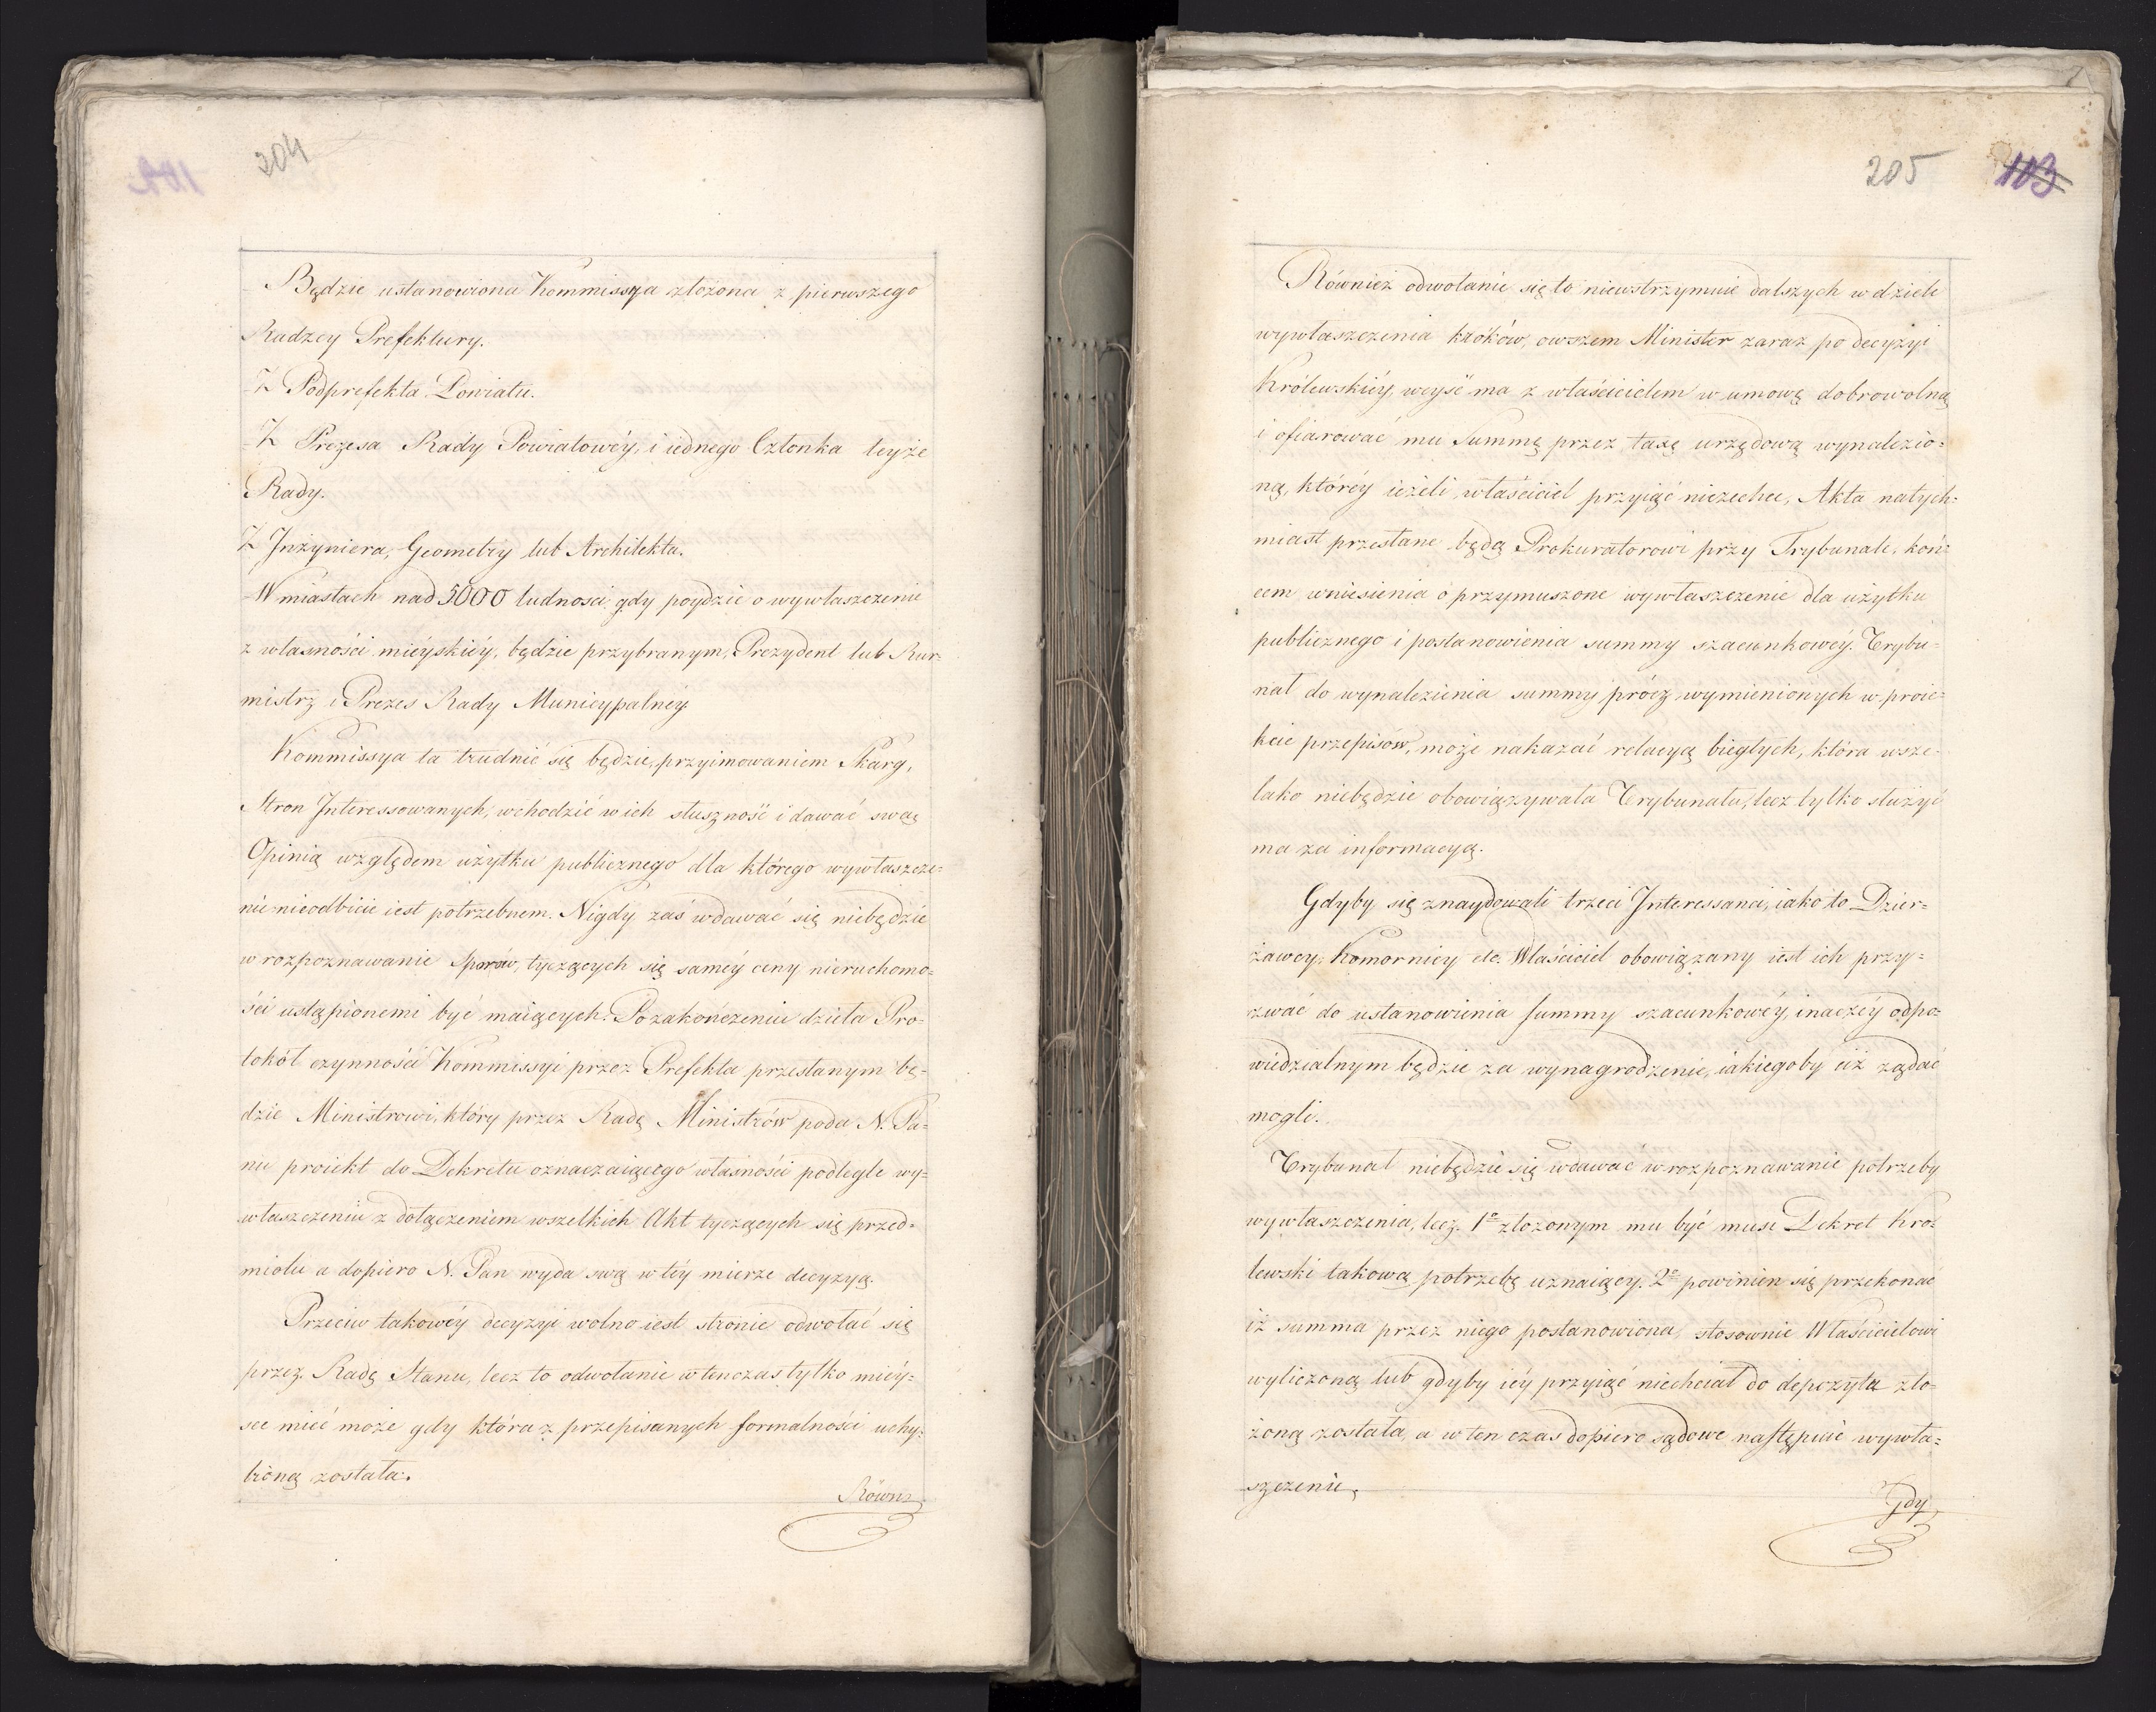 204
Będzie ustanowiona Kommissya złożona z pierwszego
Radzcy Prefektury.
Z Podprefekta Powiatu.
Z Prezesa Rady Powiatowéy, i iednego Członka teyże
Rady.
Z Inżyniera, Geometry lub Architekta.
W miastach nad 5000 ludnosci, gdy poydzie o wywłaszczenie
z własności mieyskiéy, będzie przybranym, Prezydent lub Bur-
mistrz i Prezes Rady Municypalnéy
Kommissya ta trudnić się będzie, przyimowaniem Skarg,
Stron Interessowanych, wchodzić w ich słuszność i dawać swą
Opinią względem użytku publicznego dla którego wywłaszcze=
nie nieodbicie iest potrzebnem. Nigdy zaś wdawać się niebędzie
w rozpoznawanie Sporów, tyczących się saméy ceny nieruchomo=
ści ustąpionemi być maiących. Po zakończeniu dzieła Pro=
tokół czynności Kommissyi przez Prefekta przesłanym bę=
dzie Ministrowi, który przez Radę Ministrów poda N. Pa=
nu proiekt do Dekretu oznaczaiącego własności podległe wy=
właszczeniu z dołączeniem wszelkich Akt tyczących się przed=
miotu a dopiero N. Pan wyda swą w téy mierze decyzyą.
Przeciw takowéy decyzyi wolno iest stronie odwołać się
przez Radę Stanu, lecz to odwołanie wtenczas tylko miéy=
sce mieć może gdy która z przepisanych formalności uchy=
bioną została.
Równ
205 103
Również odwołanie się to niewstrzymuie dalszych w dziele
wywłaszczenia kroków, owszem Minister zaraz po decyzyi
Królewskiéy, weyść ma z właścicielem w umowę dobrowolną
i ofiarować mu Summę przez taxę urzędową wynalezio=
ną, któréy ieżeli właściciel przyiąć niezechce, Akta natych=
miast przesłane będą Prokuratorowi przy Trybunale, koń=
cem wniesienia o przymuszone wywłaszczenie dla użytku
publicznego i postanowienia summy szacunkowéy. Trybu=
nał do wynalezienia summy prócz wymienionych w proie=
kcie przepisów, może nakazać relacyą biegłych, która wsze=
lako niebędzie obowiązywała Trybunału, lecz tylko służyć
ma za informacyą.
Gdyby się znaydowali trzeci Interessanci, iako to Dzier=
żawcy, Komornicy etc. Właściciel obowiązany iest ich przy=
zwać do ustanowienia summy szacunkowéy, inaczéy odpo=
wiedzialnym będzie za wynagrodzenie, iakiegoby ciż żądać
mogli.
Trybunał niebędzie się wdawać w rozpoznawanie potrzeby
wywłaszczenia, lecz 1º złożonym mu być musi Dekret Kró=
lewski takową potrzebę uznaiący. 2º powinien się przekonać
iż summa przez niego postanowiona, stosownie Właścicielowi
wyliczoną lub gdyby iéy przyiąć niechciał do depozytu zło=
żoną została, a w ten czas dopiero sądowe następuie wywła=
szczenie.
Gdy